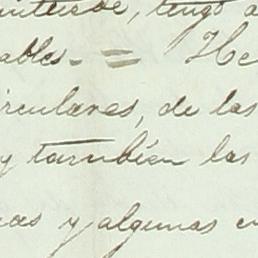 tengo a
ables. = He
irculares, de las
y tambien las
as y algunas en